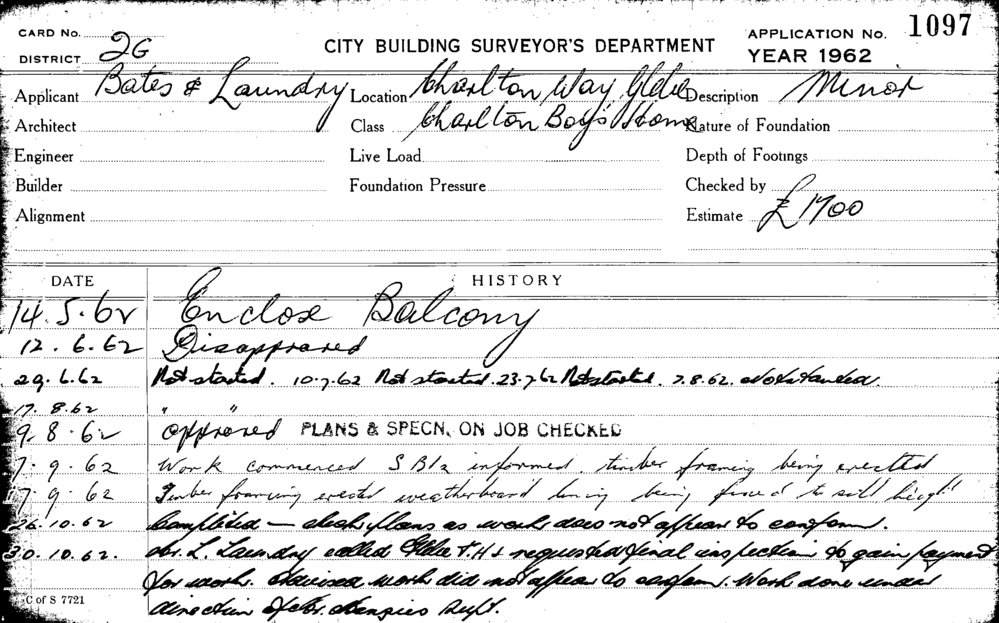 CARD No.
DISTRICT 2G
CITY BUILDING SURVEYOR'S DEPARTMENT
APPLICATION No. 1097
YEAR 1962
Applicant Bates & Laundry Location Charlton Way Glebe Description Minor
Architect Class Charlton Boy's Home Nature of Foundation
Engineer Live Load Depth of Footings
Builder Foundation Pressure Checked by
Alignment Estimate £1700
DATE HISTORY
14.5.62 Enclose Balcony
12.6.62 Disapproved
29.6.62 Not started. 10.7.62 Not started. 23.7.62 Not started. 7.8.62. Not started.
17.8.62 " "
9.8.62 Approved PLANS & SPECN. ON JOB CHECKED
7.9.62 Work commenced SBI2 informed. timber framing being erected
17.9.62 Timber framing erected weatherboard lining being fixed to sill height
26.10.62 Completed — check plans as work does not appear to conform.
30.10.62. Mr. L. Laundry called Glebe T.H & requested final inspection to gain payment
for work. Advised work did not appear to conform. Work done under
direction of Mr. Menzies Supt.
C of S 7721